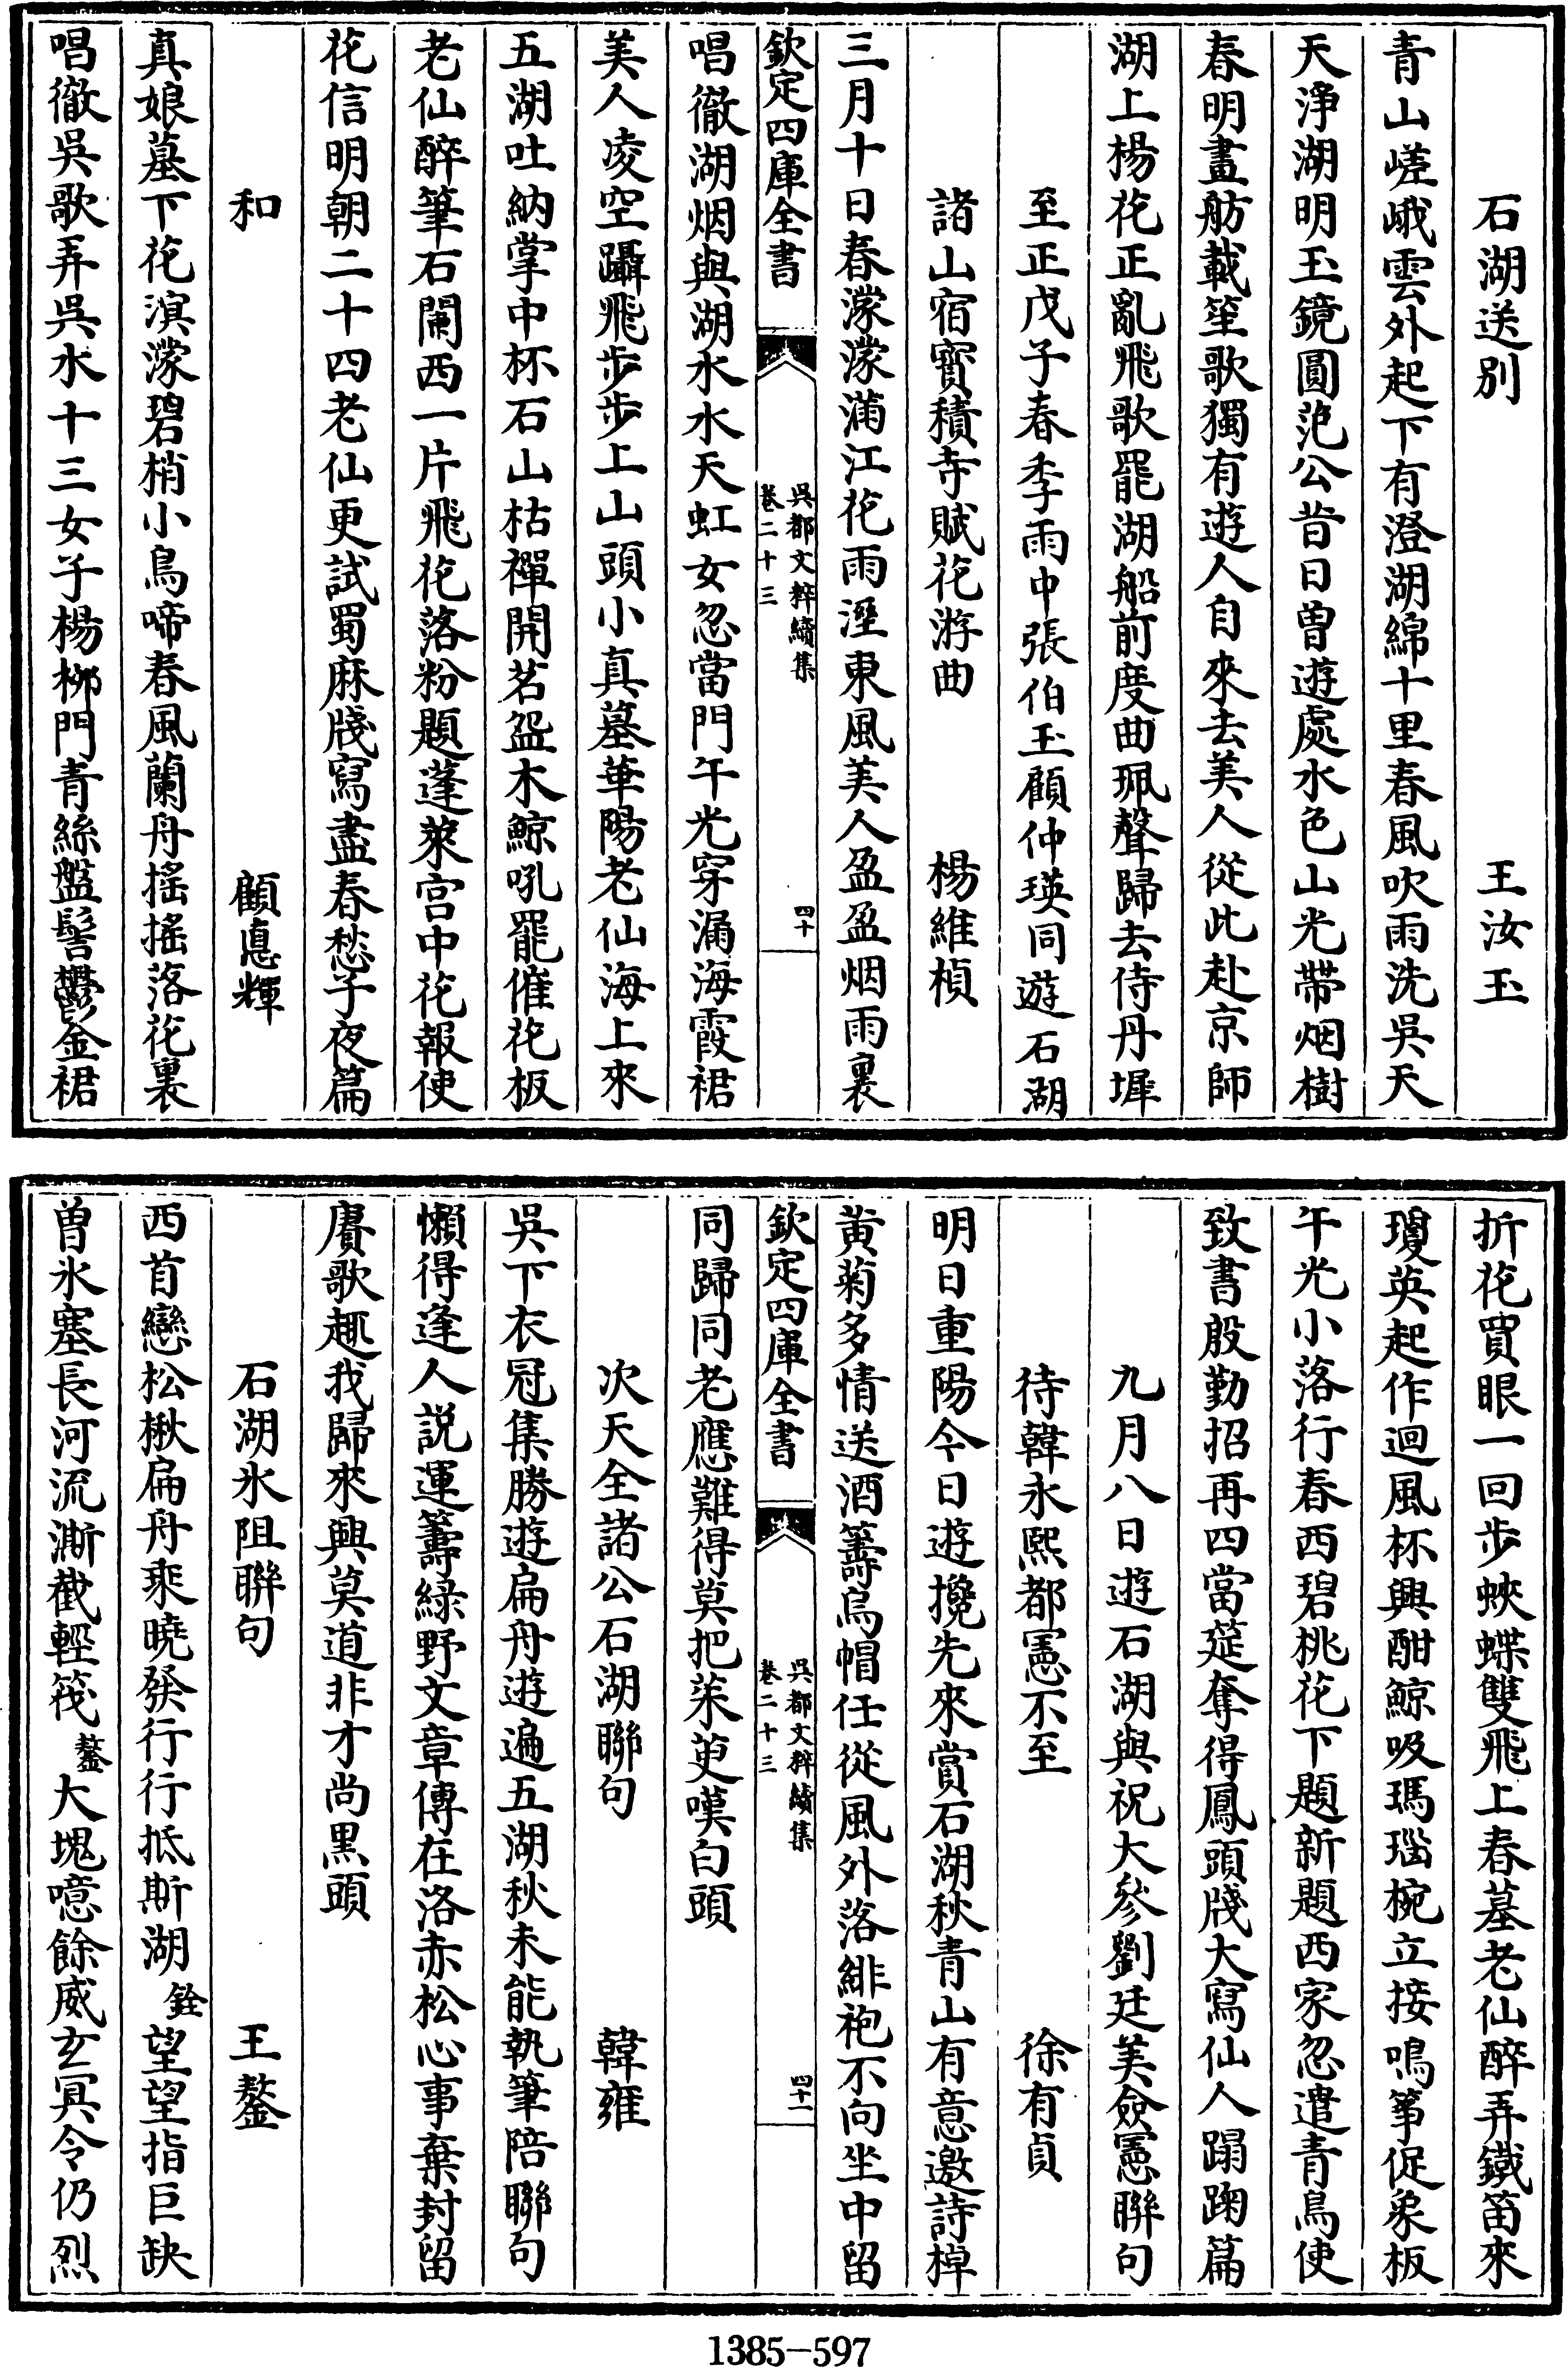 石湖送别　王汝玉
青山嵯峨雲外起下有澄湖綿十里春風吹雨洗吳天
天淨湖明玉鏡圓范公昔日曽遊處水色山光帶烟樹
春明畫舫載笙歌獨有遊人自來去美人從此赴京師
湖上楊花正亂飛歌罷湖船前度曲珮聲歸去侍丹墀
至正戊子春季雨中張伯玉顧仲瑛同遊石湖
諸山宿寳積寺賦花游曲　楊維楨
三月十日春濛濛滿江花雨溼東風美人盈盈烟雨裏
欽定四庫全書　吳都文粹續集　卷二十三　四十
唱徹湖烟與湖水水天虹女忽當門午光穿漏海霞裙
美人凌空躡飛步步上山頭小真墓華陽老仙海上來
五湖吐納掌中杯石山枯禪開茗盌木鯨吼罷催花板
老仙醉筆石闌西一片飛花落粉題蓬萊宫中花報使
花信明朝二十四老仙更試蜀麻牋寫盡春愁子夜篇
和　顧悳輝
真娘墓下花溟濛碧梢小鳥啼春風蘭舟搖搖落花裏
唱徹吳歌弄吳水十三女子楊栁門青絲盤髻鬱金裙
折花買眼一回步蛺蝶雙飛上春墓老仙醉弄鐵笛來
瓊英起作迴風杯興酣鯨吸瑪瑙椀立接鳴筝促象板
午光小落行春西碧桃花下題新題西家忽遣青鳥使
致書殷勤招再四當筵奪得鳳頭牋大寫仙人蹋踘篇
九月八日遊石湖與祝大參劉廷美僉憲聯句
待韓永熙都憲不至　徐有貞
明日重陽今日遊攙先來賞石湖秋青山有意邀詩棹
黄菊多情送酒籌烏帽任從風外落緋袍不向坐中留
欽定四庫全書　吳都文粹續集　卷二十三　四十一
同歸同老應難得莫把茱萸嘆白頭
次天全諸公石湖聯句　韓雍
吳下衣冠集勝遊扁舟遊遍五湖秋未能執筆陪聯句
懶得逢人説運籌緑野文章傳在洛赤松心事棄封留
賡歌趣我歸來興莫道非才尚黑頭
石湖氷阻聯句　王鏊
西首戀松楸扁舟乘曉發行行抵斯湖銓望望指巨缺
曽氷塞長河流澌截輕筏鏊大塊噫餘威玄冥令仍烈
1385—597